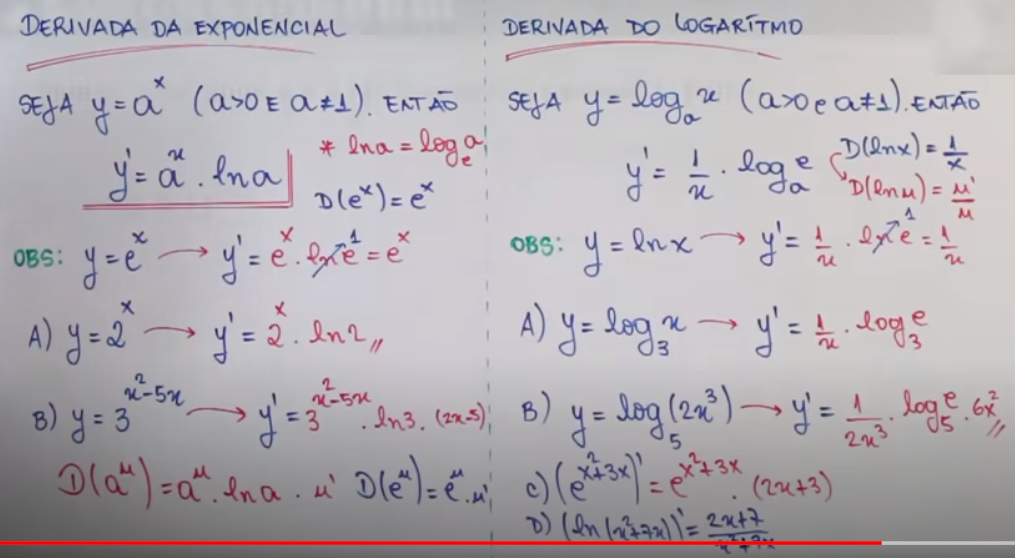 DERIVADA DA EXPONENCIAL
SEJA y = a^x (a>0 E a≠1). ENTÃO
y' = a^x . ln a
* ln a = log_e a
D(e^x) = e^x
OBS: y = e^x → y' = e^x . ln e^1 = e^x
A) y = 2^x → y' = 2^x . ln 2 //
B) y = 3^(x²-5x) → y' = 3^(x²-5x) . ln 3 . (2x-5)
D(a^u) = a^u . ln a . u' D(e^u) = e^u . u'
DERIVADA DO LOGARÍTMO
SEJA y = log_a x (a>0 e a≠1). ENTÃO
y' = 1/x . log_a e
D(ln x) = 1/x
D(ln u) = u'/u
OBS: y = ln x → y' = 1/x . ln e^1 = 1/x
A) y = log_3 x → y' = 1/x . log_3 e
B) y = log_5 (2x³) → y' = 1/2x³ . log_5 e . 6x² //
C) (e^(x²+3x))' = e^(x²+3x) . (2x+3)
D) (ln (x²+7x))' = 2x+7/x²+7x